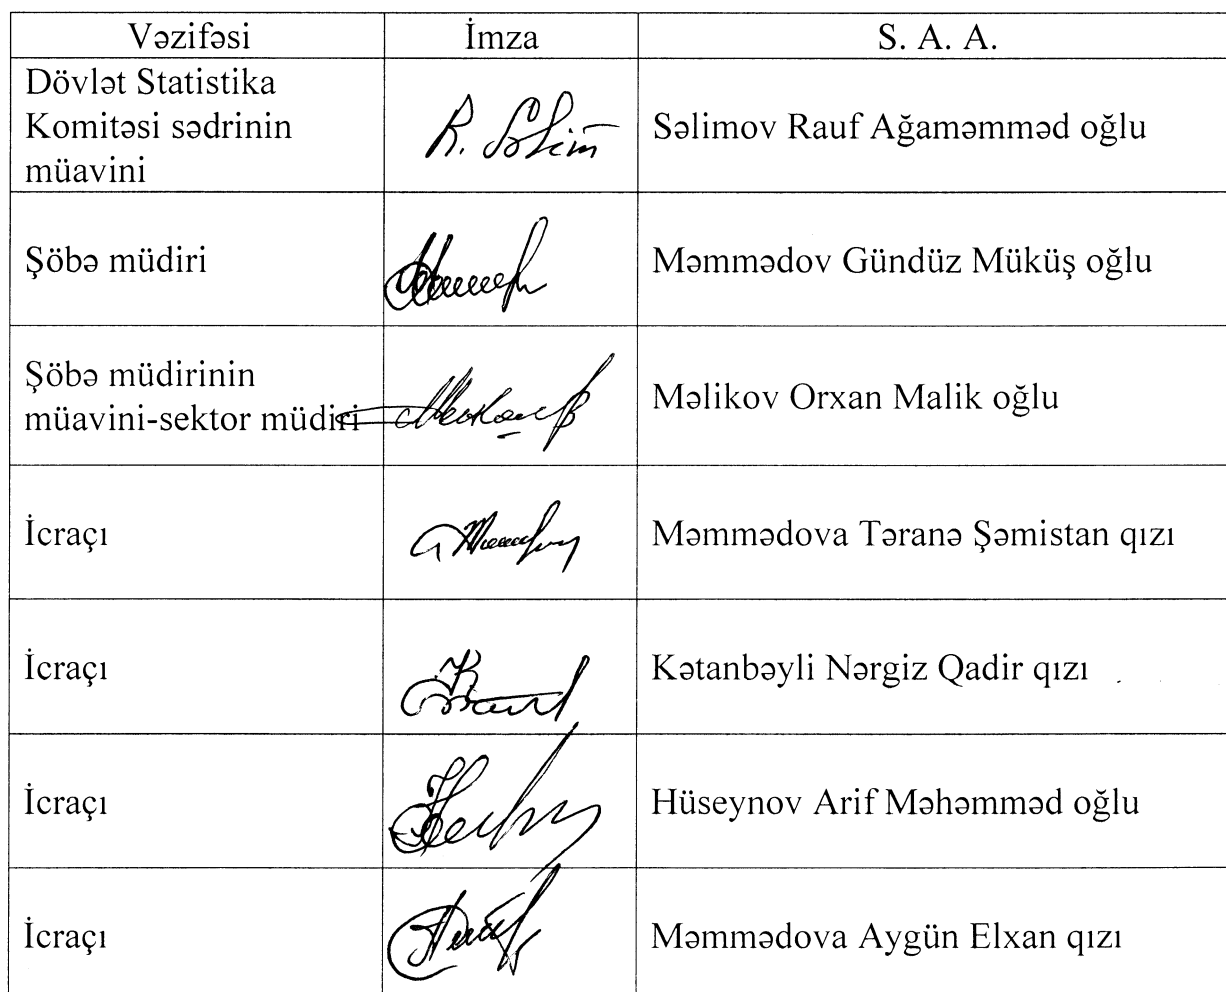 Vəzifəsi İmza S. A. A.
Dövlət Statistika
Komitəsi sədrinin
müavini
R. Səlim
Səlimov Rauf Ağaməmməd oğlu
Şöbə müdiri
Məmmədov Gündüz Müküş oğlu
Şöbə müdirinin
müavini-sektor müdiri
Məlikov Orxan Malik oğlu
İcraçı
Məmmədova Təranə Şəmistan qızı
İcraçı
Kətanbəyli Nərgiz Qadir qızı
İcraçı
Hüseynov Arif Məhəmməd oğlu
İcraçı
Məmmədova Aygün Elxan qızı